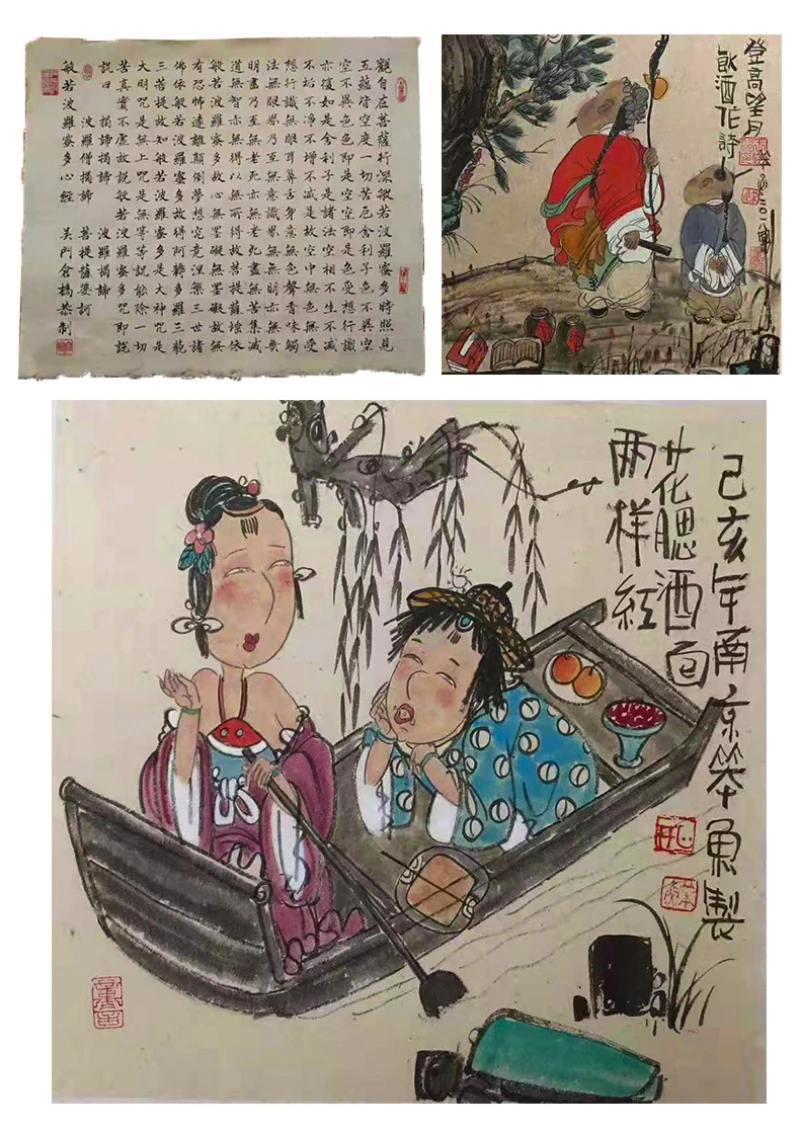 觀自在菩薩行深般若波羅蜜多時照見
五蘊皆空度一切苦厄舍利子色不異空
空不異色色即是空空即是色受想行識
亦復如是舍利子是諸法空相不生不滅
不垢不淨不增不減是故空中無色無受
想行識無眼耳鼻舌身意無色聲香味觸
法無眼界乃至無意識界無無明亦無無
明盡乃至無老死亦無老死盡無苦集滅
道無智亦無得以無所得故菩提薩埵依
般若波羅蜜多故心無罣礙無罣礙故無
有恐怖遠離顛倒夢想究竟涅槃三世諸
佛依般若波羅蜜多故得阿耨多羅三藐
三菩提故知般若波羅蜜多是大神咒是
大明咒是無上咒是無等等咒能除一切
苦真實不虛故說般若波羅蜜多咒即說
咒曰 揭諦揭諦 波羅揭諦
波羅僧揭諦 菩提薩婆訶
般若波羅蜜多心經 吳門倉橋恭制
登高望月
飲酒作詩
二〇一八
己亥年南京笨魚製
花腮酒面
两样紅